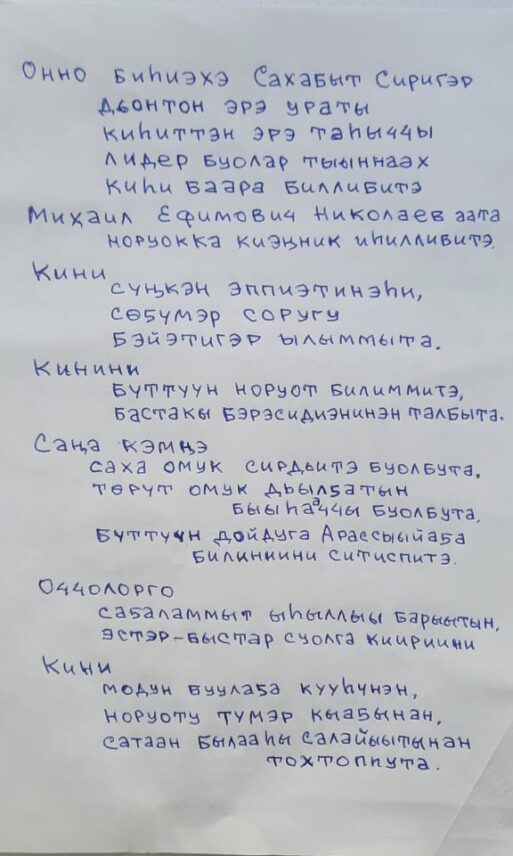 Онно биһиэхэ Сахабыт Сиригэр
дьонтон эрэ ураты
киһиттэн эрэ таһыччы
лидер буолар тыыннаах
киһи баара биллибитэ
Михаил Ефимович Николаев аата
норуокка киэҥник иһиллибитэ.
Кини
сүҥкэн эппиэтинэһи,
сөбүмэр соругу
бэйэтигэр ылыммыта.
Кинини
бүттүүн норуот билиммитэ,
бастакы бэрэсидиэнинэн талбыта.
Саҥа кэмҥэ
саха омук сирдьитэ буолбута,
төрүт омук дьылҕатын
быыһааччы буолбута,
бүттүүн дойдуга Арассыыйаҕа
билинкини ситиспитэ.
Оччолорго
саҕаламмыт ыһыллыы барыытын,
эстэр-быстар суолга киириини
Кини
модун буулаҕа күүһүнэн,
норуоту түмэр кыаҕынан,
сатаан былааһы салайыытынан
тохтоппута.